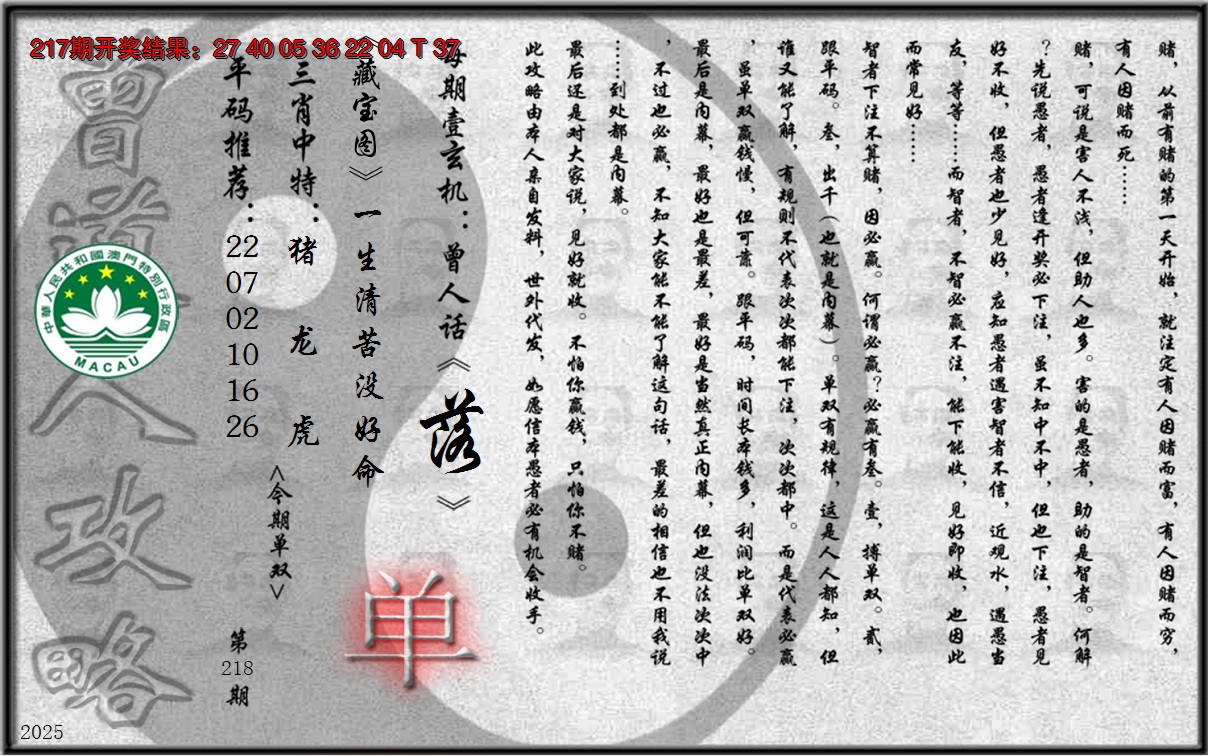 217期开奖结果：27 40 05 36 22 04 T 37
赌，从前有赌的第一天开始，就注定有人因赌而富，有人因赌而穷，
有人因赌而死……
赌，可说是害人不浅，但助人也多。害的是愚者，助的是智者。何解
？先说愚者，愚者逢开奖必下注，虽不知中不中，但也下注，愚者见
好不收，但愚者也少见好，应知愚者遇害智者不信，近观水，遇愚当
友，等等……而智者，不智必赢不注，能下能收，见好即收，也因此
而常见好……
智者下注不算赌，因必赢。何谓必赢？必赢有叁。壹，搏单双。贰，
跟平码。叁，出千（也就是内幕）。单双有规律，这是人人都知，但
谁又能了解，有规则不代表次次都能下注，次次都中。而是代表必赢
，虽单双赢钱慢，但可靠。跟平码，时间长本钱多，利润比单双好。
最后是内幕，最好也是最差，最好是当然真正内幕，但也没法次次中
，不过也必赢，不知大家能不能了解这句话，最差的相信也不用我说
……到处都是内幕。
最后还是对大家说，见好就收。不怕你赢钱，只怕你不赌。
此攻略由本人亲自发料，世外代发，如愿信本愚者必有机会收手。
每期壹玄机：曾人话《落》
《藏宝图》一生清苦没好命
单
三肖中特：猪 龙 虎
<今期单双>
平码推荐：22 07 02 10 16 26
第218期
曾道人攻略
中華人民共和國澳門特別行政區
MACAU
2025